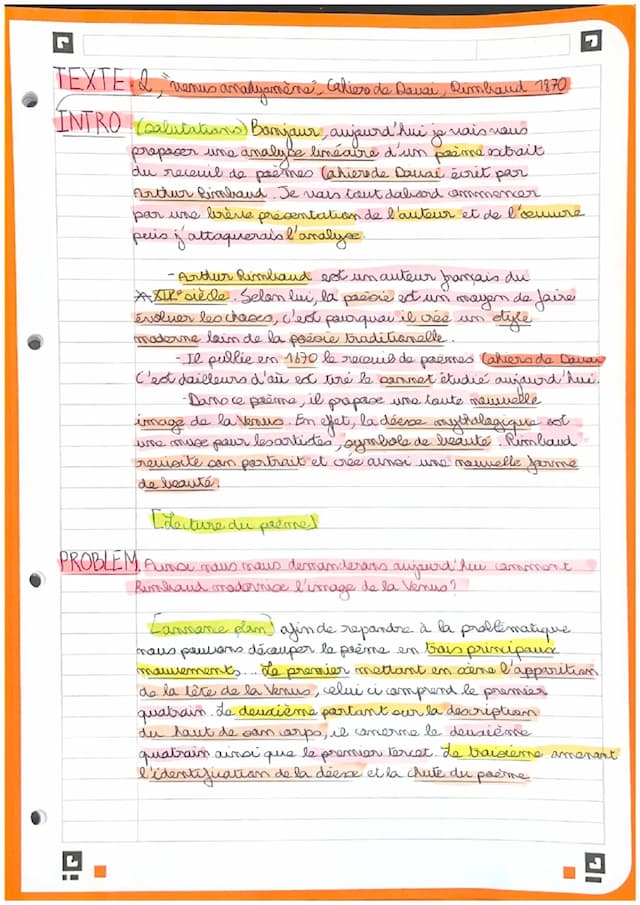 TEXTE 2, "venus anadyomène", Cahiers de Douai, Rimbaud 1870
INTRO (salutations) Bonjour, aujourd'hui je vais vous
proposer une analyse linéaire d'un poème extrait
du receuil de poèmes Cahiers de Douai écrit par
Arthur Rimbaud. Je vais tout dabord commencer
par une brève présentation de l'auteur et de l'oeuvre
puis j'attaquerais l'analyse.
- Arthur Rimbaud est un auteur français du
XIXe siècle. Selon lui, la poésie est un moyen de faire
évoluer les choses, c'est pourquoi il créé un style
moderne loin de la poésie traditionelle.
- Il publie en 1870 le receuil de poèmes Cahiers de Douai
C'est dailleurs d'où est tiré le sonnet étudié aujourd'hui.
- Dans ce poème, il propose une toute nouvelle
image de la Venus. En effet, la déese mythologique est
une muse pour les artistes, symbole de beauté. Rimbaud
revisite son portrait et crée ainsi une nouvelle forme
de beauté.
[Lecture du poème]
PROBLEM. Ainsi nous nous demanderons aujourd'hui comment
Rimbaud modernise l'image de la Venus?
[annonce plan] afin de repondre à la problématique
nous pouvons découper le poème en trois principaux
mouvements... Le premier mettant en scène l'apparition
de la tête de la Venus, celui ci comprend le premier
quatrain. Le deuxième portant sur la description
du haut de son corps, il concerne le deuxième
quatrain ainsi que le premier tercet. Le troisième amenant
l'identification de la déese et la chute du poème